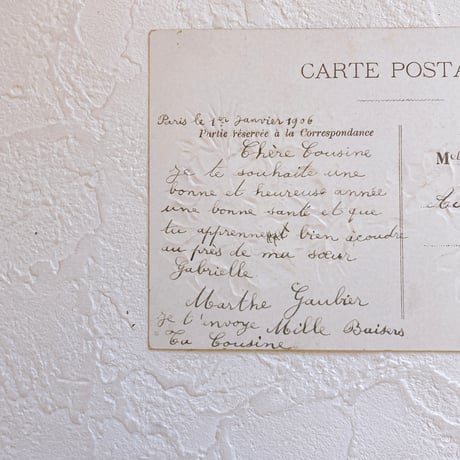 CARTE POSTA
Paris le 1er Janvier 1906
Partie réservée à la Correspondance
Chère Cousine
je te souhaite une
bonne et heureuse année
une bonne santé et que
tu apprennent bien acoudre
au près de ma sœur
Gabrielle
Marthe Gaubier
je t'envoye Mille Baisers
Ta Cousine